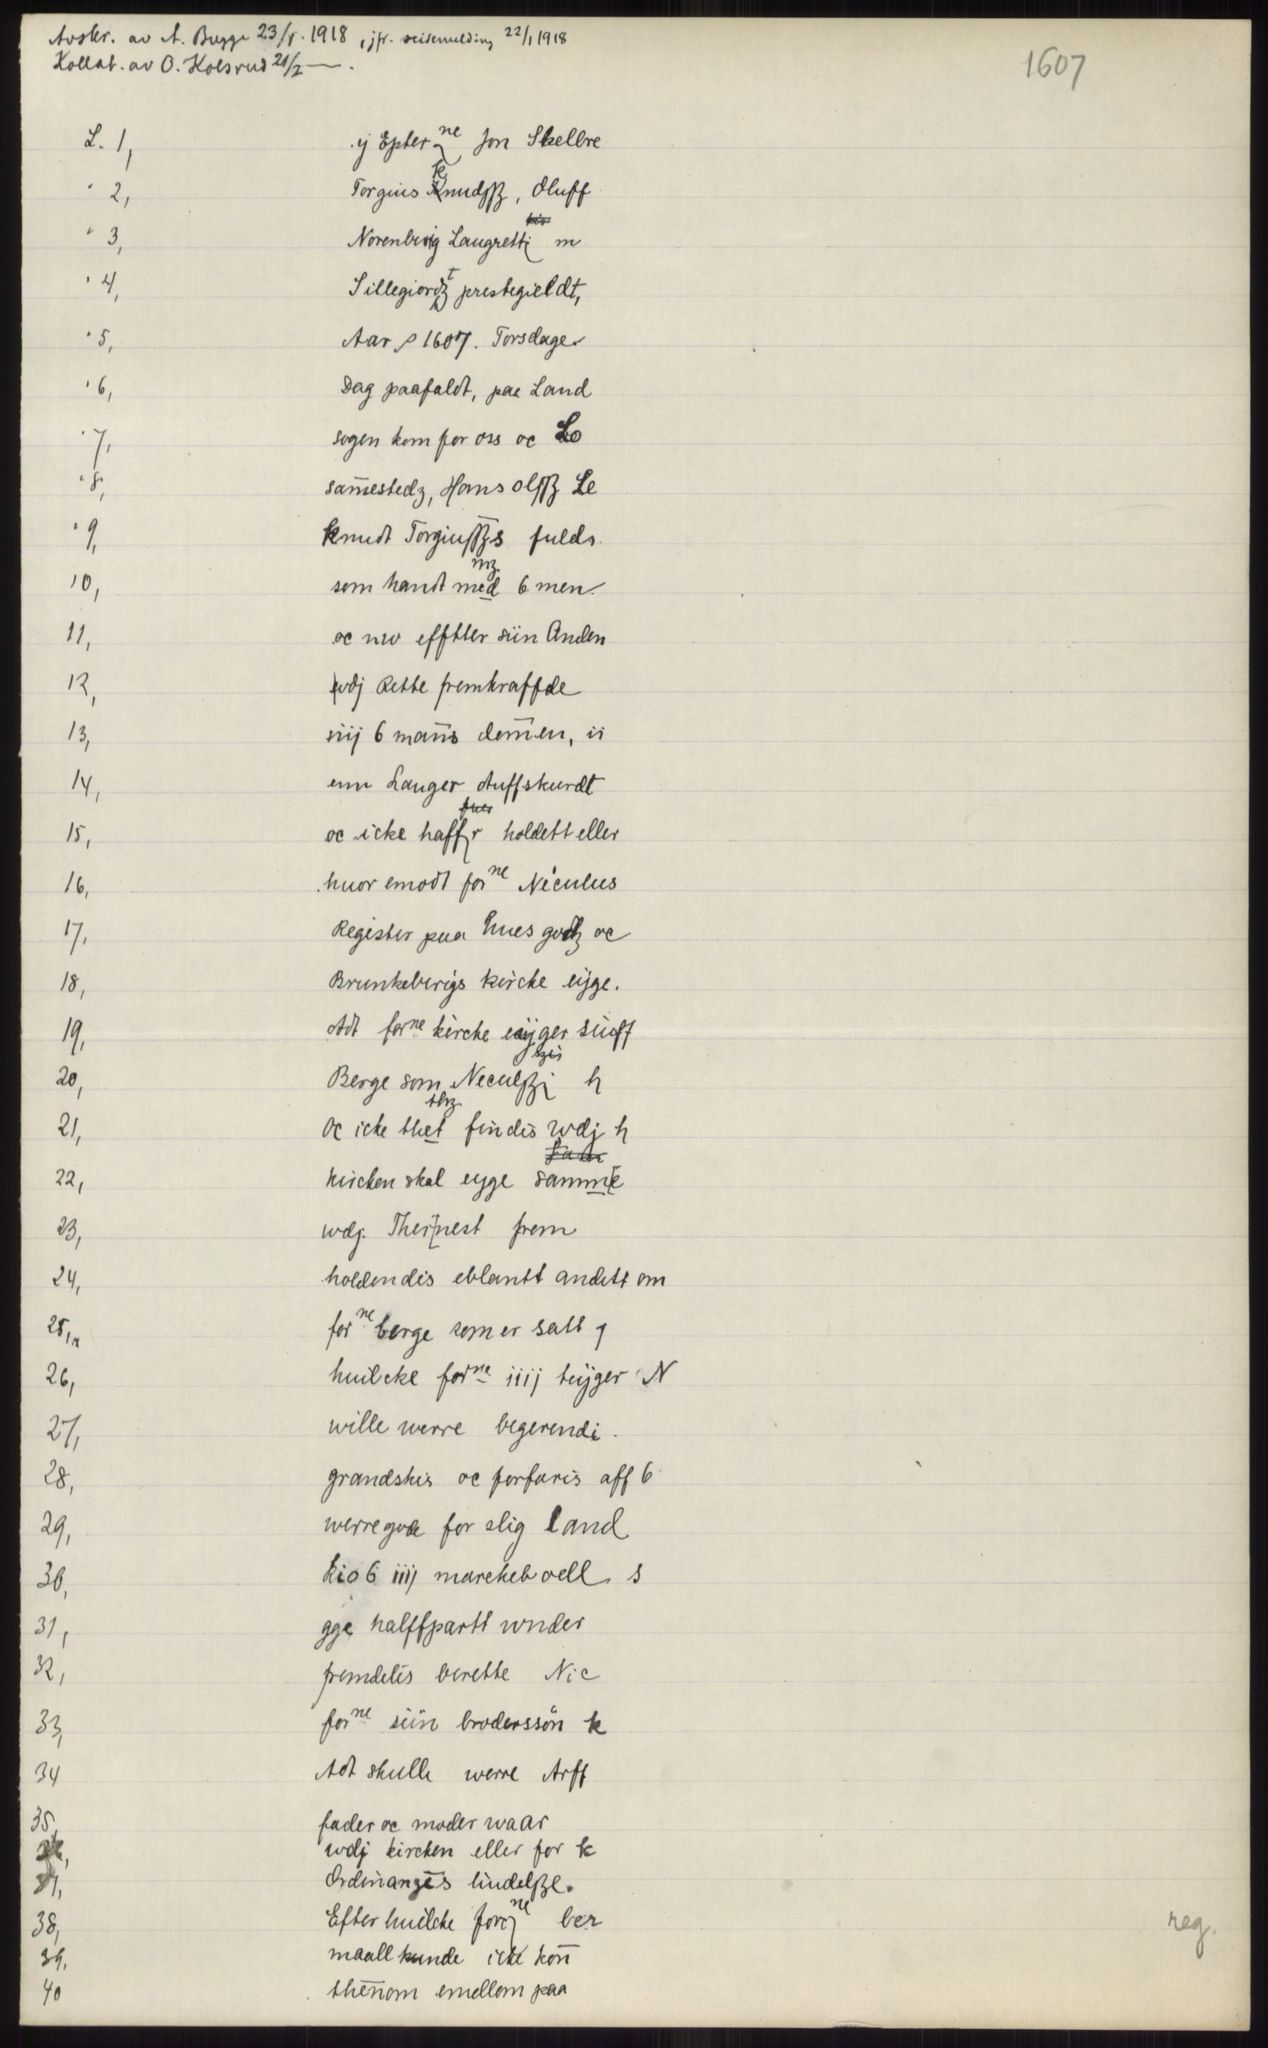 Avskr. av A. Bugge 23/1. 1918, jfr. reisemelding 22/1 1918
Kollat. av O. Kolsrud 21/2 —.
1607
L. 1, ij Epter ne Jon Skelbre
" 2, Torgius Knudssz, Oluff
" 3, Norenberig Laugretti m
" 4, Sillegiordz prestegieldt,
" 5, Aar 1607. Torsdage
" 6, Dag paafaldt, paa Land
" 7, sogen kom for oss oc Lo
" 8, sam̄estedz, Hans olssz Le
" 9, Knudt Torgiussz̄s fulds
10, som handt med 6 men
11, oc nw effther siin Anden
12, wdj Rette fremkraffde
13, siij 6 man̄s dom̄en, ii
14, enn Langer Auffskurdt
15, oc icke haffr holdett eller
16, huor emodt for ne Niculus
17, Register paa hues godz oc
18, Brunkeberigs kircke eijge.
19, Adt for ne kircke eijger siuff
20, Berge som Neculsz h
21, Oc icke thet findis wdj h
22, kircken skal eyge samme
23, wdj. Thernest frem
24, holdendis eblantt andett om
25, for ne berge som er satt
26, huilcke for ne iiij tuijger N
27, wille werre begerendi
28, grandskis oc forfaris aff 6
29, werre goe for slig land
30, kiob iiij marckeboell s
31, gge halffpartt wnder
32, fremdelis berette Nic
33, for ne siin broderssön k
34 Adt skulle werre Arff
35, fader oc moder waar
36, wdj kircken eller for k
37, Ordinanzēs liudelsze.
38, Efter huilcke for ne ber
39, maall kunde icke kon̄
40 then̄om emellom paa
reg.